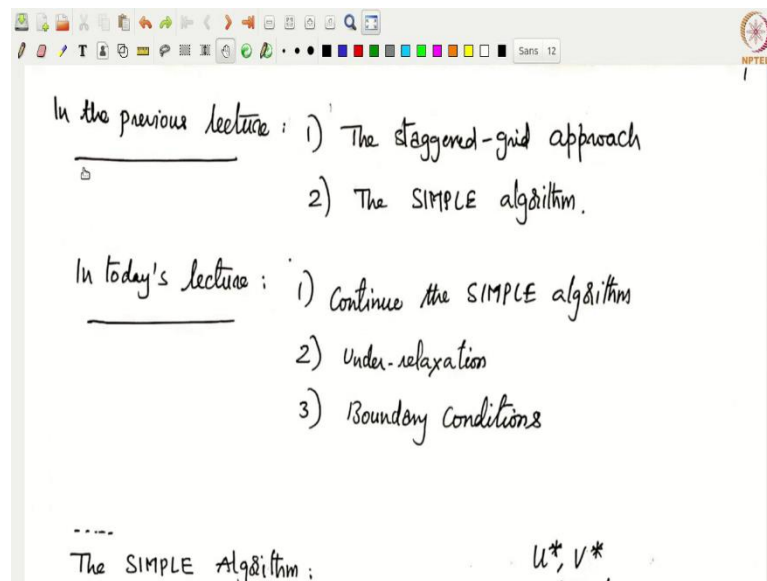 Sans 12
NPTEL
1
In the previous lecture : 1) The staggered-grid approach
2) The SIMPLE algorithm.
In today's lecture : 1) Continue the SIMPLE algorithm
2) Under-relaxation
3) Boundary Conditions
The SIMPLE Algorithm :
U*, V*